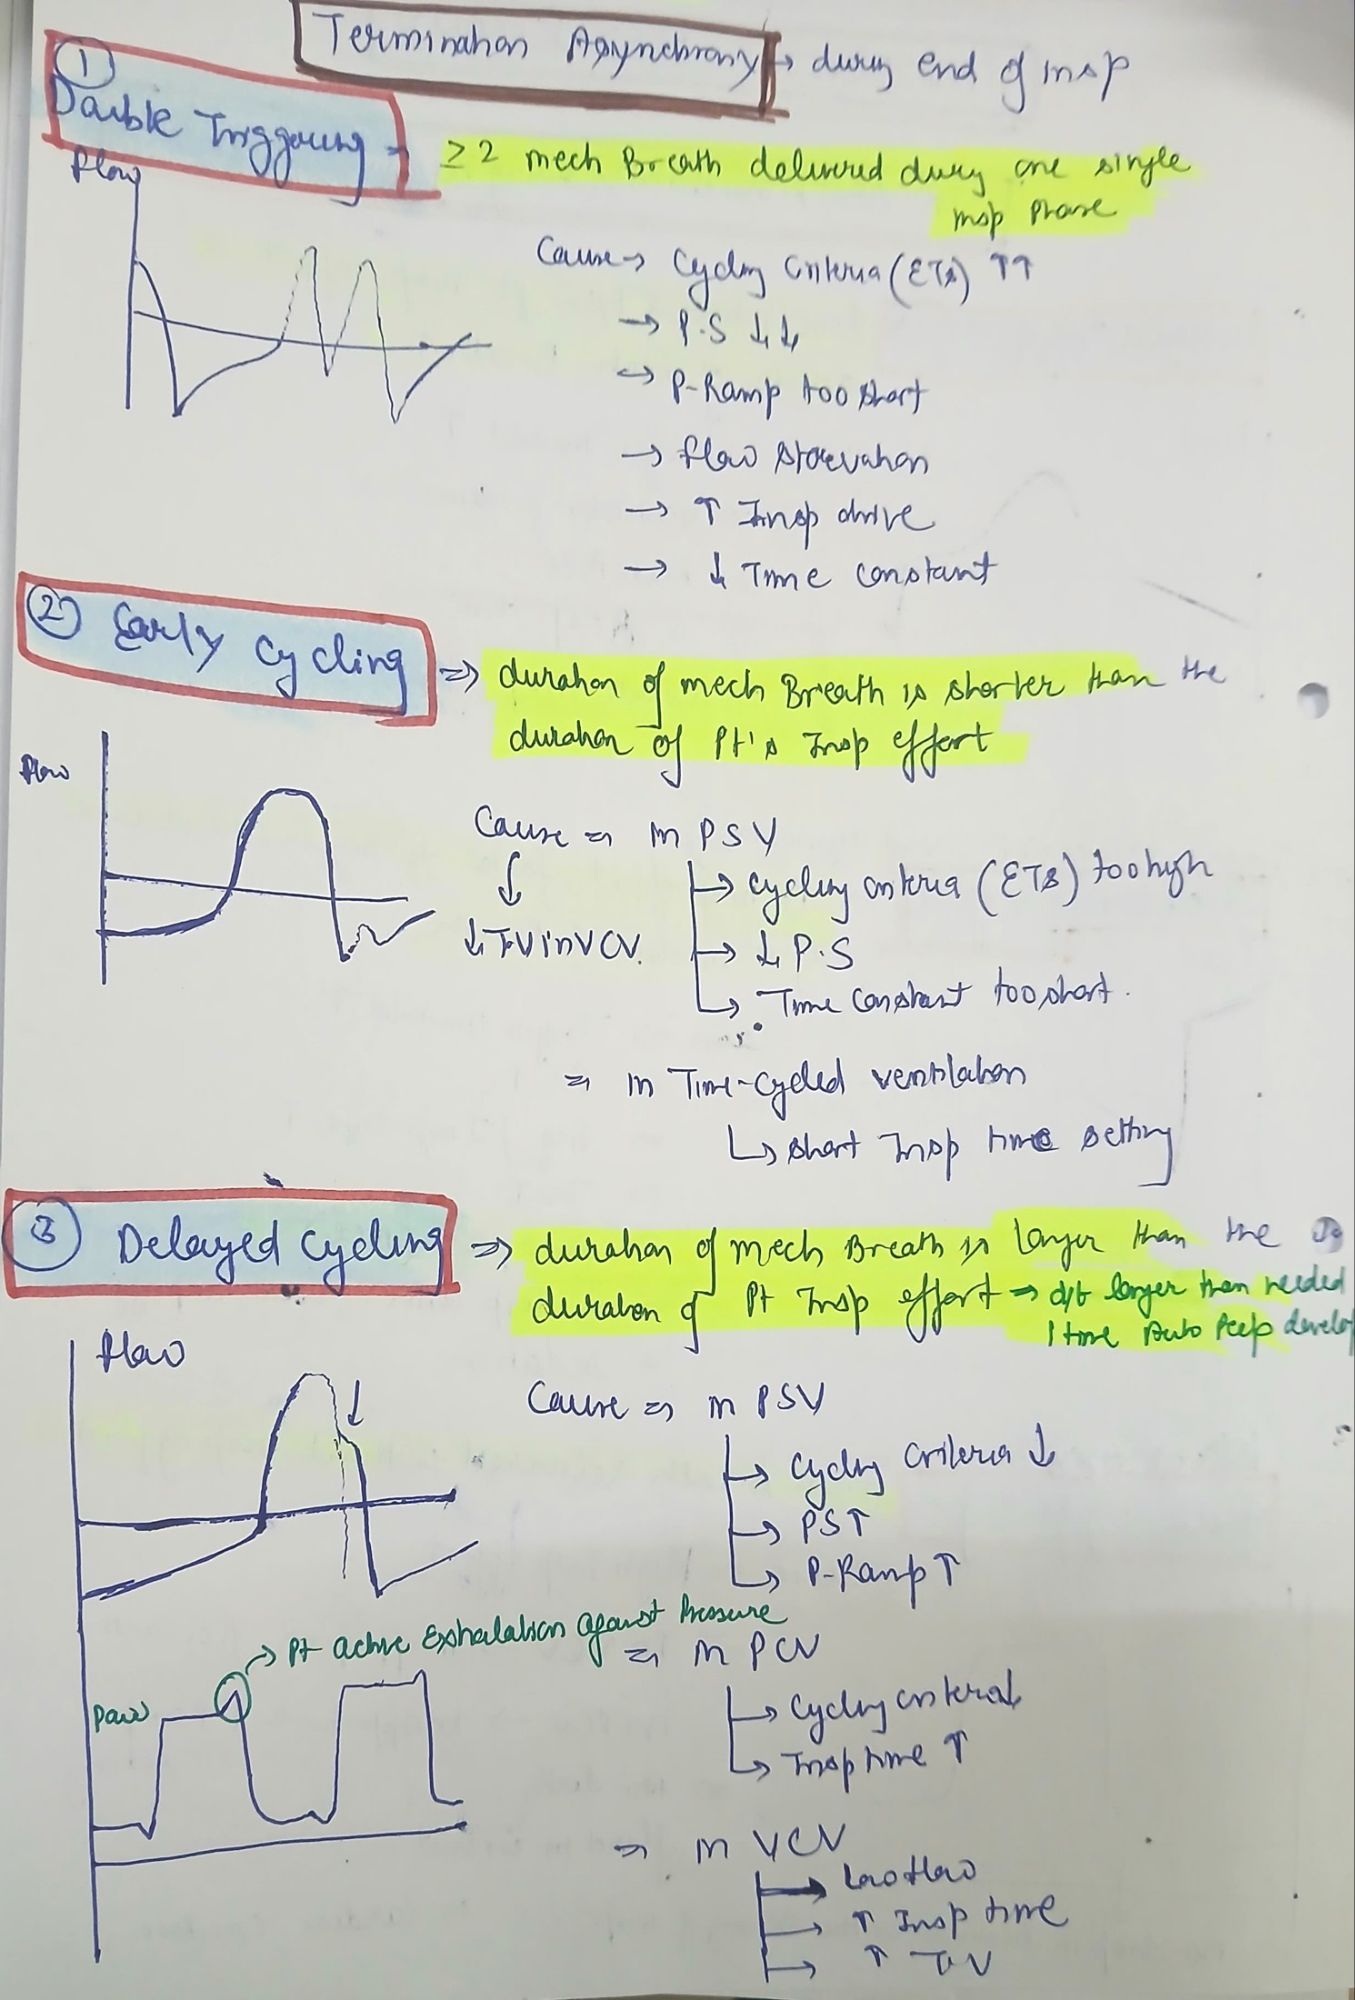 Termination Asynchrony → during end of insp
① Double Triggering → ≥ 2 mech Breath delivered during one single
insp Phase
flow
Cause → Cycling Criteria (ETS) ↑↑
→ P.S ↓↓
→ P-Ramp too short
→ flow starvation
→ ↑ Insp drive
→ ↓ Time constant
② Early Cycling ⇒ duration of mech Breath is shorter than the
duration of Pt's Insp effort
flow
Cause ⇒ in PSV
↓
↓ TV in VCV.
→ cycling criteria (ETS) too high
→ ↓ P.S
→ Time Constant too short.
⇒ in Time-cycled ventilation
↳ short Insp time setting
③ Delayed Cycling ⇒ duration of mech Breath is longer than the
duration of Pt Insp effort ⇒ d/t longer than needed
I time Auto Peep develop
flow
↓
Cause ⇒ in PSV
→ Cycling Criteria ↓
→ PS↑
→ P-Ramp ↑
→ Pt active Exhalation against Pressure
⇒ in PCV
Paw
→ Cycling criteria↓
→ Insp time ↑
⇒ in VCV
→ Low flow
→ ↑ Insp time
→ ↑ TV